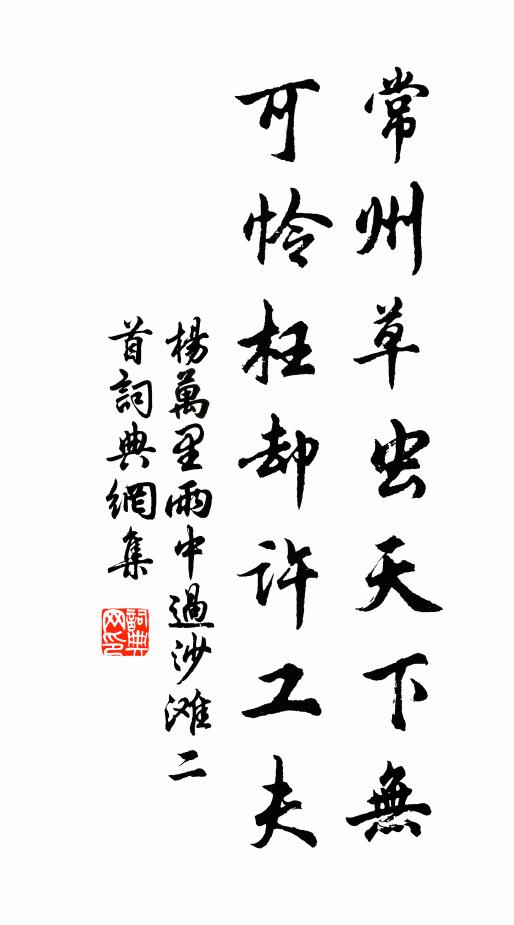 常州草虫天下無
可怜枉却許工夫
楊萬里雨中過沙滩二
首詞典網集
詞典